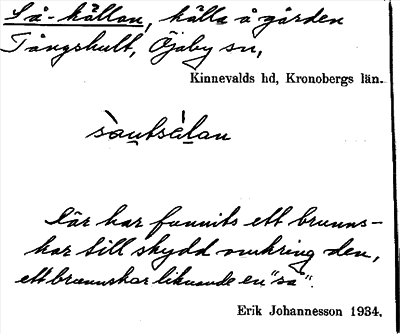 Så-källan, källa å gården
Tångshult, Öjaby sn,
Kinnevalds hd, Kronobergs län.
Där har funnits ett brunns-
kar till skydd omkring den,
ett brunnskar liknande en "så".
Erik Johannesson 1934.